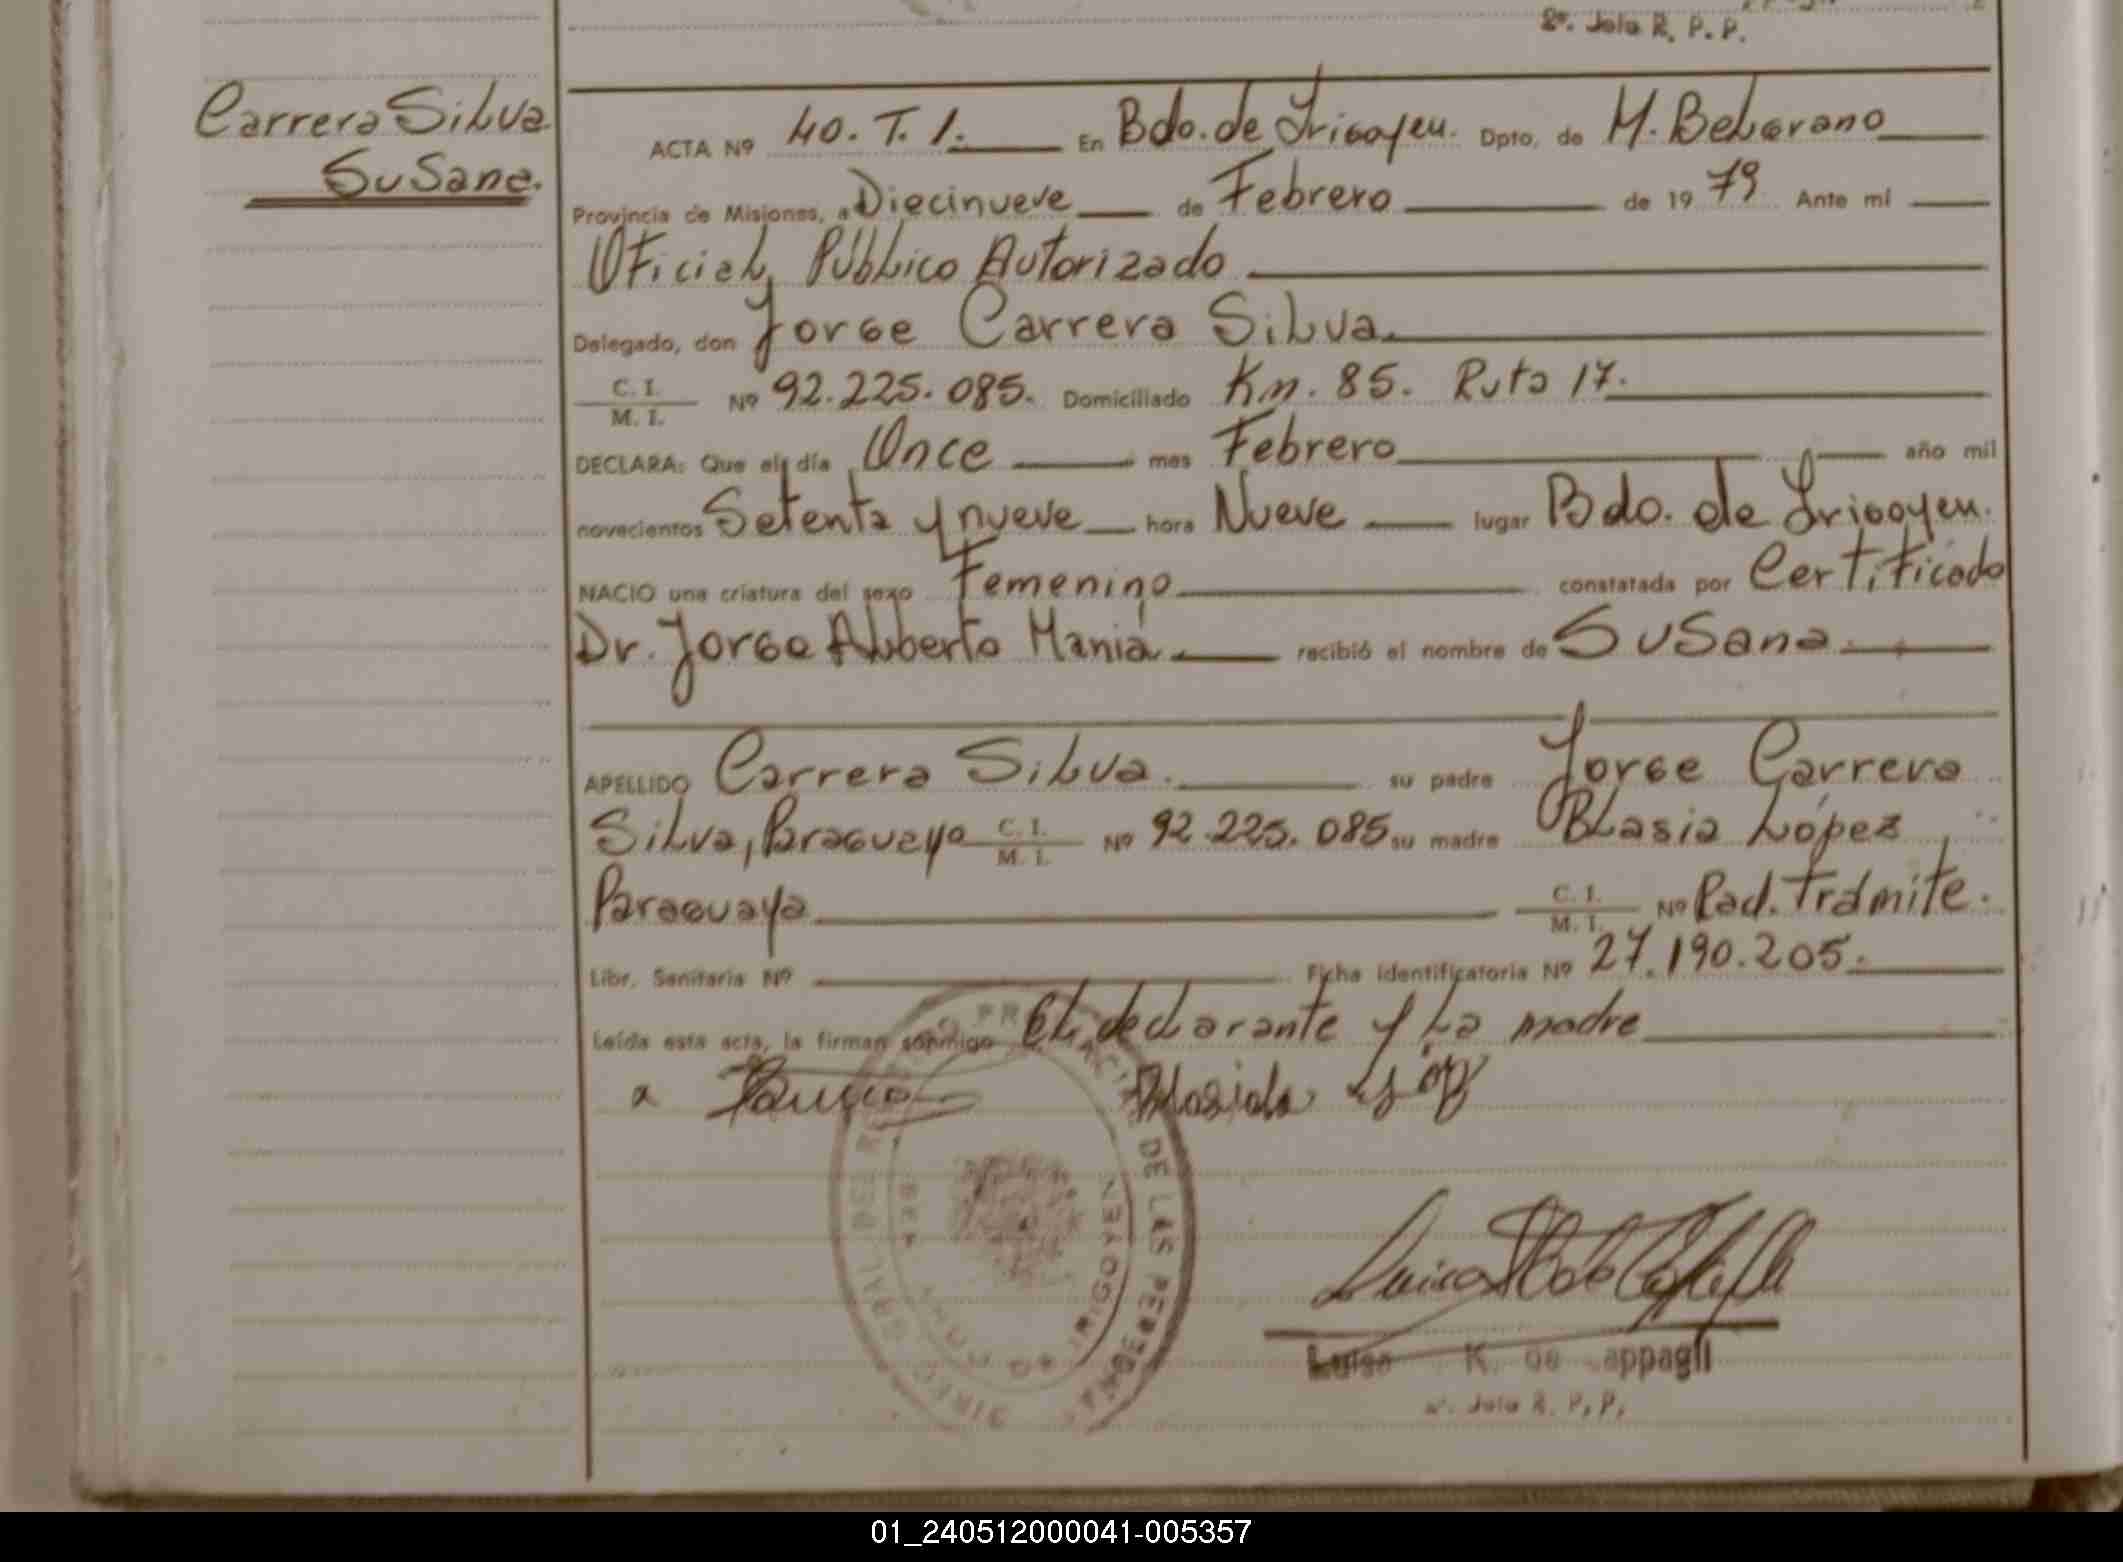 2º. Jefa R. P. P.
Carrera Silva
Susana.
ACTA Nº 40. T. 1. En Bdo. de Irigoyen. Dpto. de M. Belgrano
Provincia de Misiones, a Diecinueve de Febrero de 19 79 Ante mi
Oficial Público Autorizado
Delegado, don Jorge Carrera Silva.
C. I.
M. I. Nº 92.225.085. Domiciliado Km. 85. Ruta 17.
DECLARA: Que el día Once mes Febrero año mil
novecientos Setenta y nueve hora Nueve lugar Bdo. de Irigoyen.
NACIO una criatura del sexo Femenino constatada por Certificado
Dr. Jorge Alberto Maniá recibió el nombre de Susana.
APELLIDO Carrera Silva. su padre Jorge Carrera
Silva, Paraguayo C. I. M. I. Nº 92.225.085 su madre Blasia López
Paraguaya C. I. M. I. Nº Rad. Trámite.
Libr. Sanitaria Nº Ficha identificatoria Nº 27.190.205.
Leída esta acta, la firman conmigo El declarante y La madre
DE LAS PERSONAS
IRIGOYEN
Luisa K. de appagli
2º. Jefa R. P. P.
01_240512000041-005357